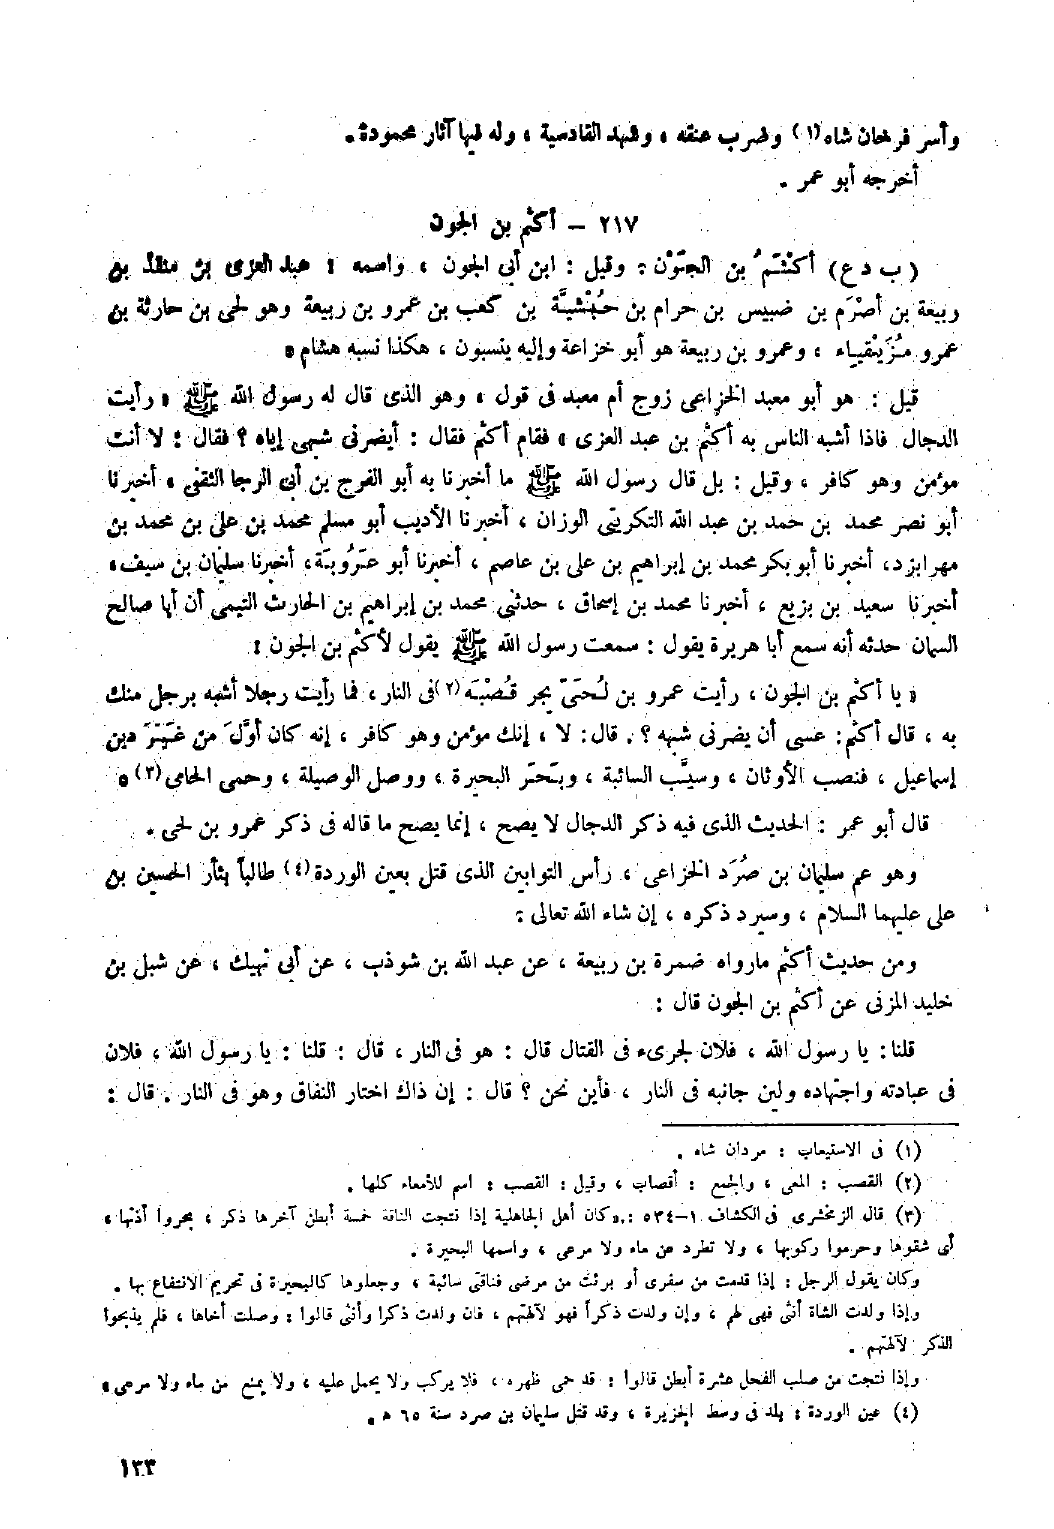 وأسر فرخان شاه(١) وضرب عنقه ، وشهد القادسية ، وله فيها آثار محمودة .
أخرجه أبو عمر .
٢١٧ – أكثم بن الجون
( ب د ع ) أكْثَمُ بن الجَوْن ، وقيل : ابن أبي الجون ، واسمه : عبد العزى بن منقذ بن
ربيعة بن أصْرَم بن ضبيس بن حرام بن حُبْشيَّة بن كعب بن عمرو بن ربيعة وهو لحى بن حارثة بن
عمرو مُزَيْقياء ، وعمرو بن ربيعة هو أبو خزاعة وإليه ينسبون ، هكذا نسبه هشام .
قيل : هو أبو معبد الخزاعى زوج أم معبد فى قول ، وهو الذى قال له رسول الله ﷺ « رأيت
الدجال فاذا أشبه الناس به أكثم بن عبد العزى » فقام أكثم فقال : أيضرنى شبهى إياه ؟ فقال : لا أنت
مؤمن وهو كافر ، وقيل : بل قال رسول الله ﷺ ما أخبرنا به أبو الفرج بن أبى الرجا الثقفى ، أخبرنا
أبو نصر محمد بن حمد بن عبد الله التكريتى الوزان ، أخبرنا الأديب أبو مسلم محمد بن على بن محمد بن
مهرابزد، أخبرنا أبو بكر محمد بن إبراهيم بن على بن عاصم ، أخبرنا أبو عَرُوبَة، أخبرنا سليمان بن سيف ،
أخبرنا سعيد بن بزيع ، أخبرنا محمد بن إسحاق ، حدثنى محمد بن إبراهيم بن الحارث التيمى أن أبا صالح
السمان حدثه أنه سمع أبا هريرة يقول : سمعت رسول الله ﷺ يقول لأكثم بن الجون :
« يا أكثم بن الجون ، رأيت عمرو بن لُحَىّ يجر قُصْبَه(٢) فى النار ، فما رأيت رجلا أشبه برجل منك
به ، قال أكثم: عسى أن يضرنى شبهه ؟ . قال: لا ، إنك مؤمن وهو كافر ، إنه كان أوَّلَ من غَيَّرَ دين
إسماعيل ، فنصب الأوثان ، وسيَّب السائبة ، وبَحَر البحيرة ، ووصل الوصيلة ، وحمى الحامى(٣) »
قال أبو عمر : الحديث الذى فيه ذكر الدجال لا يصح ، إنما يصح ما قاله فى ذكر عمرو بن لحى .
وهو عم سليمان بن صُرَد الخزاعى ، رأس التوابين الذى قتل بعين الوردة(٤) طالباً بثأر الحسين بن
على عليهما السلام ، وسيرد ذكره ، إن شاء الله تعالى :
ومن حديث أكثم مارواه ضمرة بن ربيعة ، عن عبد الله بن شوذب ، عن أبي نهيك ، عن شبل بن
خليد المزنى عن أكثم بن الجون قال :
قلنا: يا رسول الله ، فلان لجرىء فى القتال قال : هو فى النار ، قال : قلنا : يا رسول الله ، فلان
فى عبادته واجتهاده ولين جانبه فى النار ، فأين نحن ؟ قال : إن ذاك اختار النفاق وهو فى النار . قال :
(١) فى الاستيعاب : مردان شاه .
(٢) القصب : المعى ، والجمع : أقصاب ، وقيل : القصب : اسم للأمعاء كلها .
(٣) قال الزمخشرى فى الكشاف ١–٥٣٤ : « كان أهل الجاهلية إذا نتجت الناقة خمسة أبطن آخرها ذكر ، بحروا أذنها ،
أى شقوها وحرموا ركوبها ، ولا تطرد عن ماء ولا مرعى ، واسمها البحيرة .
وكان يقول الرجل : إذا قدمت من سفرى أو برئت من مرضى فناقتى سائبة ، وجعلوها كالبحيرة فى تحريم الانتفاع بها .
وإذا ولدت الشاة أنثى فهى لهم ، وإن ولدت ذكراً فهو لآلهتهم ، فان ولدت ذكرا وأنثى قالوا : وصلت أخاها ، فلم يذبحوا
الذكر لآلهتهم .
وإذا نتجت من صلب الفحل عشرة أبطن قالوا : قد حمى ظهره ، فلا يركب ولا يحمل عليه ، ولا يمنع من ماء ولا مرعى »
(٤) عين الوردة : بلد فى وسط الجزيرة ، وقد قتل سليمان بن صرد سنة ٦٥ ه .
١٣٣